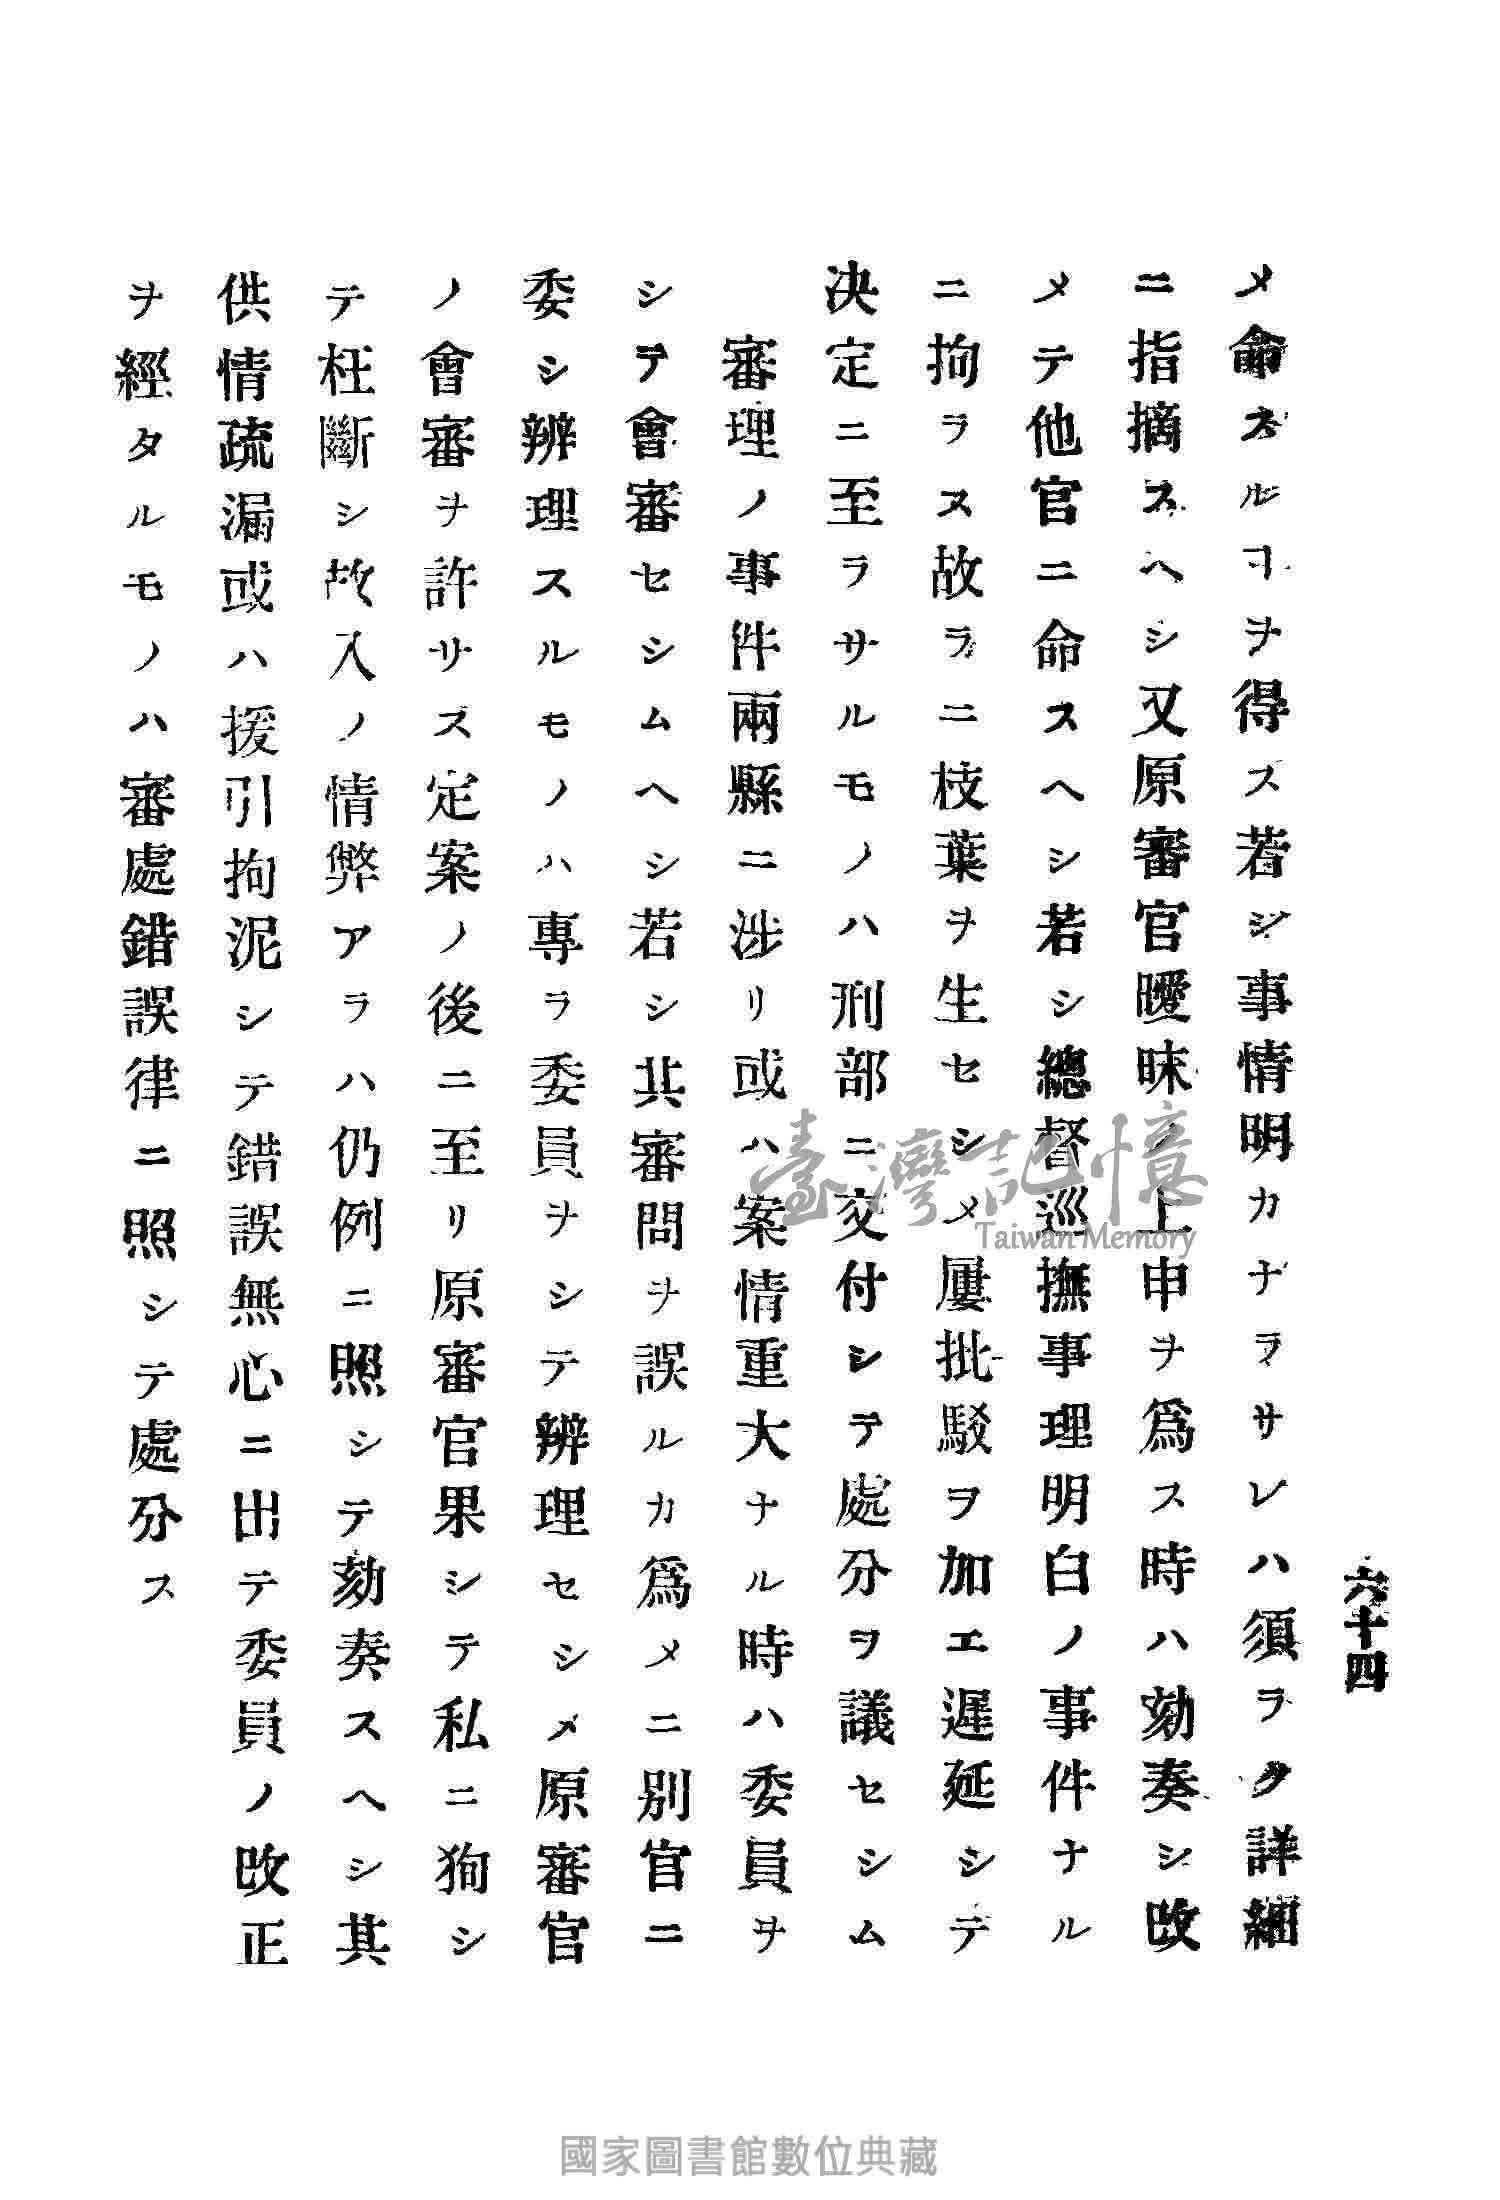 六十四
メ命スルヿヲ得ス若シ事情明カナラサレハ須ラク詳細
ニ指摘スヘシ又原審官曖昧ノ上申ヲ爲ス時ハ劾奏シ改
メテ他官ニ命スヘシ若シ總督巡撫事理明白ノ事件ナル
ニ拘ラス故ラニ枝葉ヲ生セシメ屢批駁ヲ加エ遲延シテ
决定ニ至ラサルモノハ刑部ニ交付シテ處分ヲ議セシム
審理ノ事件兩縣ニ涉リ或ハ案情重大ナル時ハ委員ヲ
シテ會審セシムヘシ若シ其審問ヲ誤ルカ爲メニ別官ニ
委シ辨理スルモノハ專ラ委員ヲシテ辨理セシメ原審官
ノ會審ヲ許サス定案ノ後ニ至リ原審官果シテ私ニ狥シ
テ枉斷シ故入ノ情弊アラハ仍例ニ照シテ劾奏スヘシ其
供情疏漏或ハ援引拘泥シテ錯誤無心ニ出テ委員ノ改正
ヲ經タルモノハ審處錯誤律ニ照シテ處分ス
臺灣記憶
Taiwan Memory
國家圖書館數位典藏